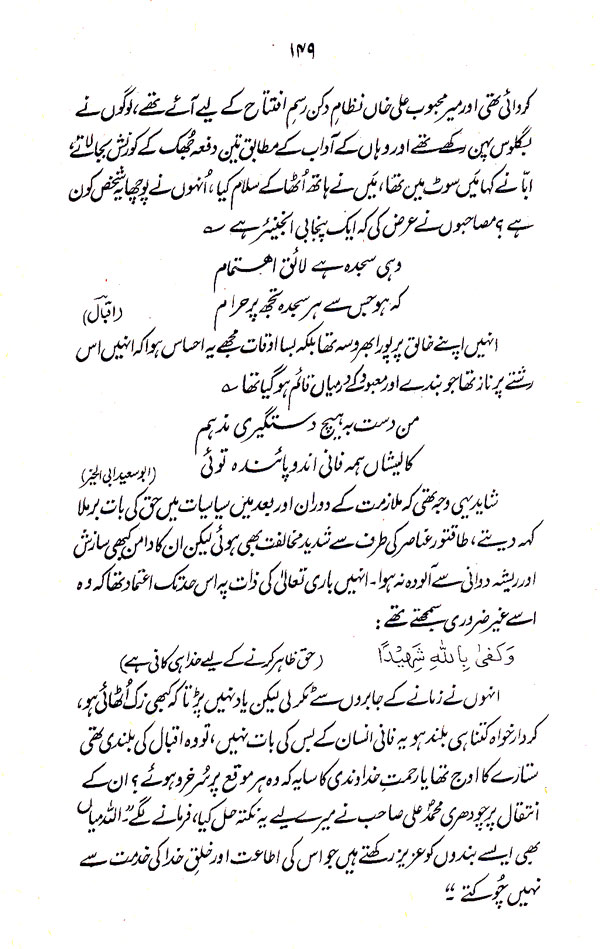 ۱۴۹
کروائی تھی اور میر محبوب علی خاں نظامِ دکن رسمِ افتتاح کے لیے آئے تھے، لوگوں نے
بگلوس پہن رکھے تھے اور وہاں کے آداب کے مطابق تین دفعہ جُھک کے کورنش بجا لاتے،
ابّا نے کہا مَیں سوٹ میں تھا، مَیں نے ہاتھ اُٹھا کے سلام کیا، اُنھوں نے پوچھا یہ شخص کون
ہے؟ مصاحبوں نے عرض کی کہ ایک پنجابی انجنیئر ہے ؎
وہی سجدہ ہے لائقِ اہتمام
کہ ہو جس سے ہر سجدہ تجھ پر حرام (اقبالؔ)
انہیں اپنے خالق پر پورا بھروسہ تھا بلکہ بسا اوقات مجھے یہ احساس ہوا کہ انہیں اس
رشتے پر ناز تھا جو بندے اور معبود کے درمیاں قائم ہو گیا تھا ؎
من دست بہ ہیچ دستگیری مذہم
کایشاں ہمہ فانی اند و پائندہ توئی (ابوسعید ابی الخیر)
شاید یہی وجہ تھی کہ ملازمت کے دوران اور بعد میں سیاسیات میں حق کی بات برملا
کہہ دیتے، طاقتور عناصر کی طرف سے شدید مخالفت بھی ہوئی لیکن ان کا دامن کبھی سازش
اور ریشہ دوانی سے آلودہ نہ ہوا۔ انہیں باری تعالیٰ کی ذات پہ اس حد تک اعتماد تھا کہ وہ
اسے غیر ضروری سمجھتے تھے :
وَكَفىٰ بِاللهِ شَهِيْدًا (حق ظاہر کرنے کے لیے خدا ہی کافی ہے)
انہوں نے زمانے کے جابروں سے ٹکر لی لیکن یاد نہیں پڑتا کہ کبھی زک اُٹھائی ہو،
کردار خواہ کتنا ہی بلند ہو یہ فانی انسان کے بس کی بات نہیں، تو وہ اقبال کی بلندی تھی
ستارے کا اوج تھا یا رحمتِ خداوندی کا سایہ کہ وہ ہر موقع پر سُرخرو ہوئے؟ ان کے
انتقال پر چودھری محمد علی صاحب نے میرے لیے یہ نکتہ حل کیا، فرمانے لگے "اللہ میاں
بھی ایسے بندوں کو عزیز رکھتے ہیں جو اس کی اطاعت اور خلقِ خدا کی خدمت سے
نہیں چُوکتے"